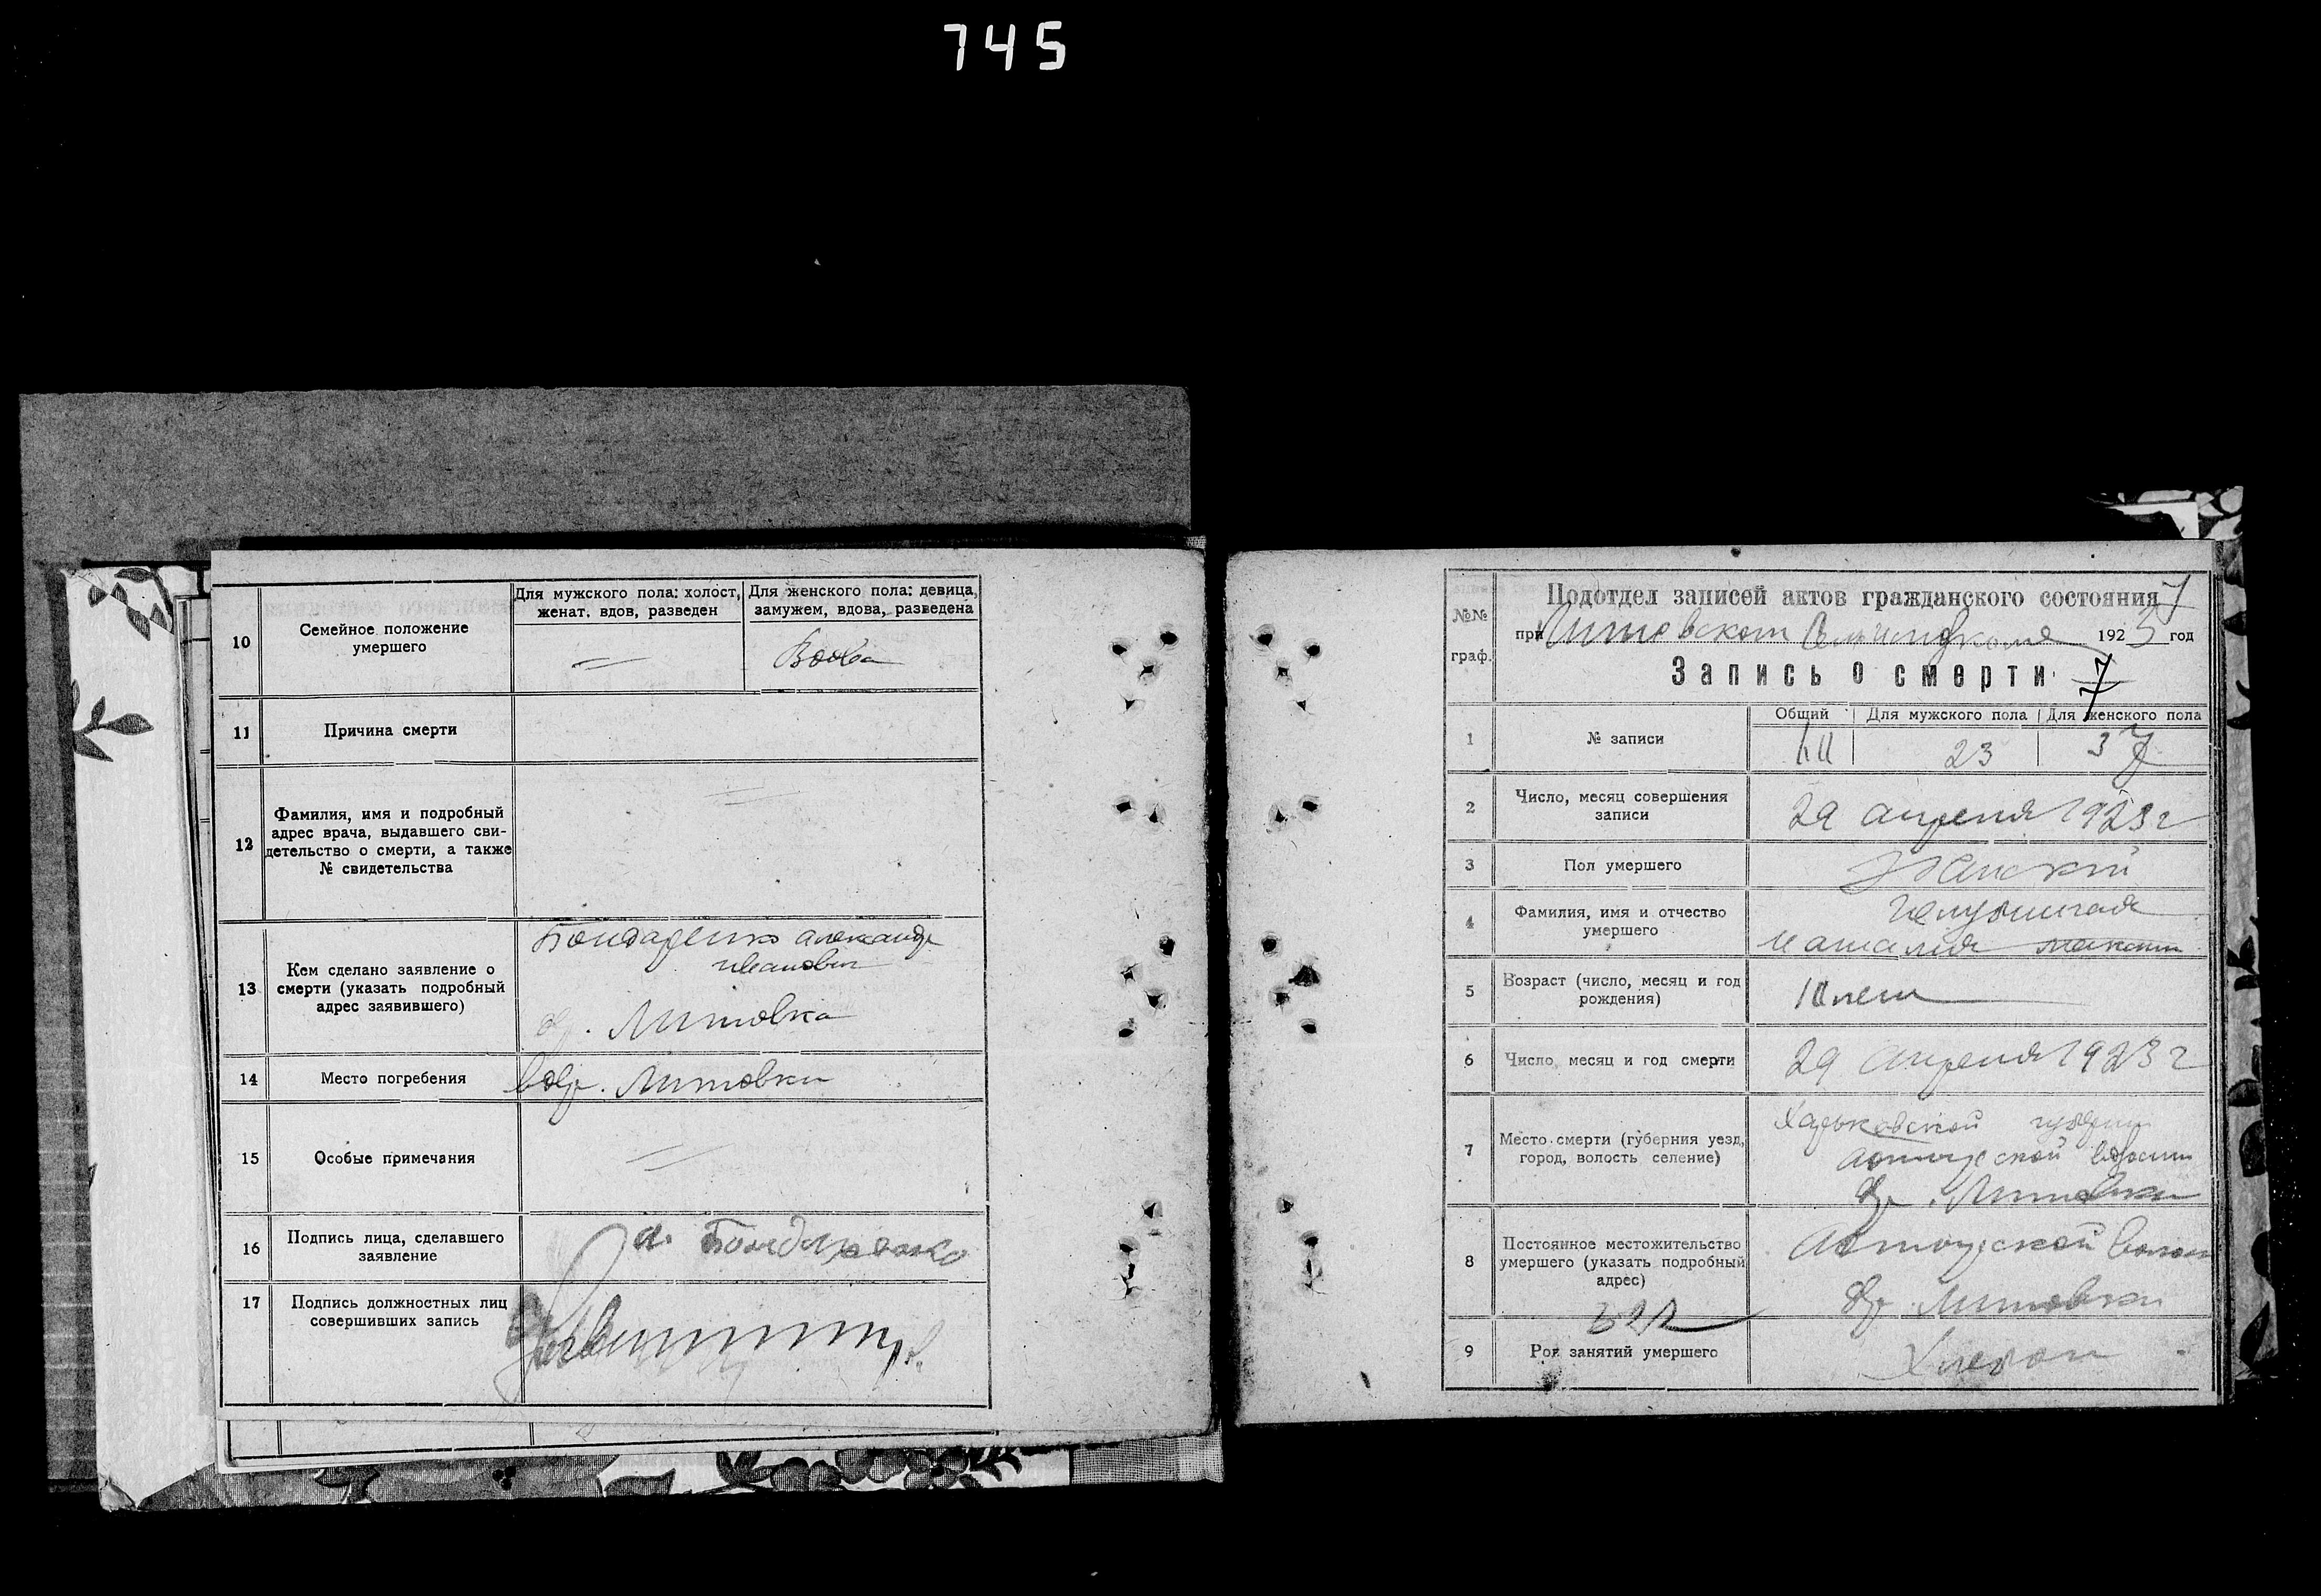 745
10
Семейное положение
умершего
Для мужского пола: холост,
женат, вдов, разведен
Для женского пола: девица,
замужем, вдова, разведена
Вдова
11
Причина смерти
12
Фамилия, имя и подробный
адрес врача, выдавшего сви-
детельство о смерти, а также
№ свидетельства
13
Кем сделано заявление о
смерти (указать подробный
адрес заявившего)
Бондаренко Александр
Иванович
др. Литовка
14
Место погребения
в др. Литовки
15
Особые примечания
16
Подпись лица, сделавшего
заявление
А. Бондаренко
17
Подпись должностных лиц
совершивших запись
№№
граф.
Подотдел записей актов гражданского состояния
при Литовском 1923 год
Запись о смерти
7
1
№ записи
Общий
Для мужского пола
23
Для женского пола
37
2
Число, месяц совершения
записи
29 апреля 1923 г
3
Пол умершего
Женский
4
Фамилия, имя и отчество
умершего
Наталия
5
Возраст (число, месяц и год
рождения)
лет
6
Число, месяц и год смерти
29 апреля 1923 г
7
Место смерти (губерния уезд,
город, волость селение)
Харьковской губернии
волости
др. Литовки
8
Постоянное местожительство
умершего (указать подробный
адрес)
др. Литовки
9
Род занятий умершего
Хлебоп